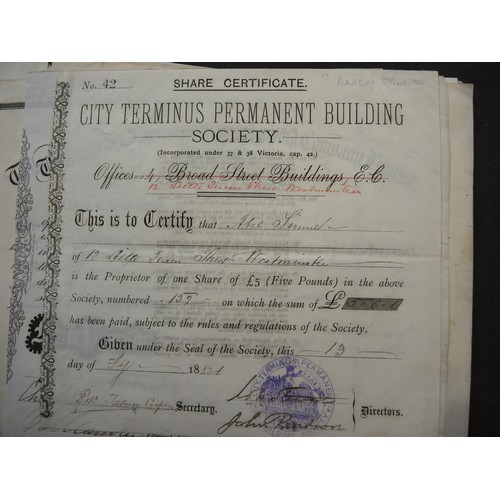 No. 42
SHARE CERTIFICATE.
CITY TERMINUS PERMANENT BUILDING
SOCIETY.
(Incorporated under 37 & 38 Victoria, cap. 42.)
Offices—4, Broad Street Buildings, E.C.
12 Little Queen Street Westminster
This is to Certify that Abel
of 12 Little Queen Street Westminster
is the Proprietor of one Share of £5 (Five Pounds) in the above
Society, numbered 157 on which the sum of £5-0-0
has been paid, subject to the rules and regulations of the Society.
Given under the Seal of the Society, this 13
day of 1884
CITY TERMINUS PERMANENT
Secretary.
Directors.
John